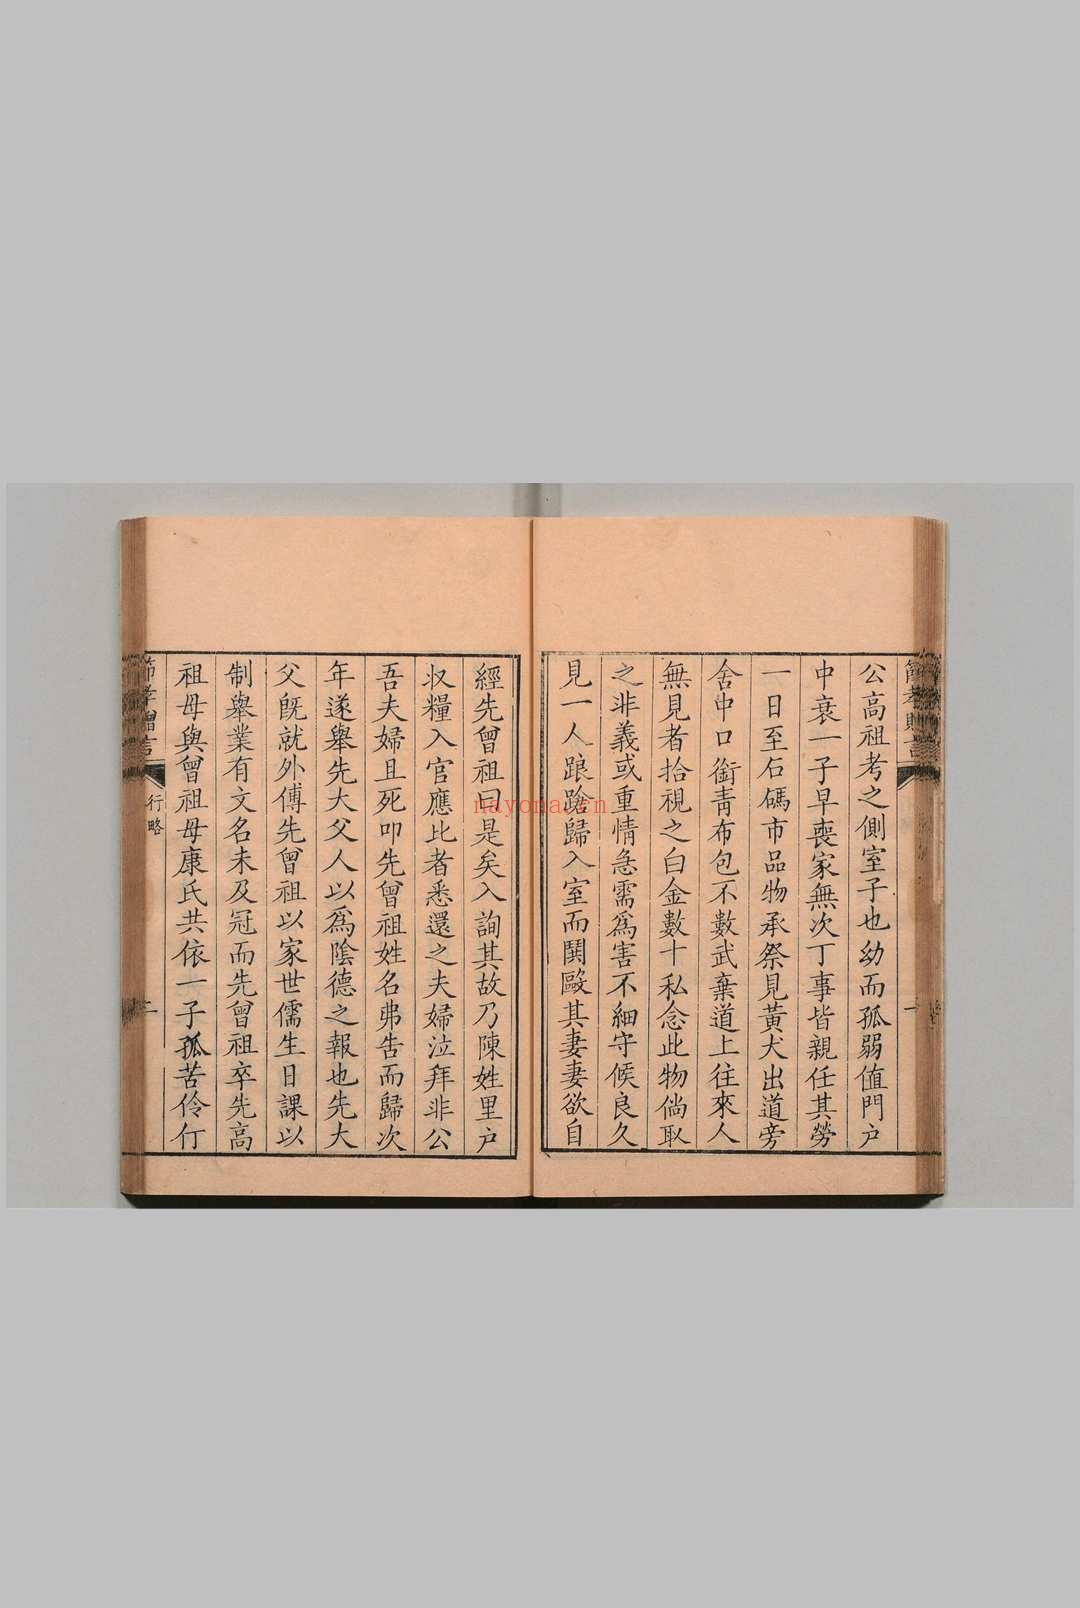 公高祖考之側室子也幼而孤弱值門户
中衰一子早喪家無次丁事皆親任其勞
一日至石碼市品物承祭見黃犬出道旁
舍中口銜青布包不數武棄道上往來人
無見者拾視之白金數十私念此物倘取
之非義或重情急需爲害不細守候良久
見一人踉蹌歸入室而鬨毆其妻妻欲自
經先曾祖曰是矣入詢其故乃陳姓里户
収糧入官應比者悉還之夫婦泣拜非公
吾夫婦且死叩先曾祖姓名弗告而歸次
年遂舉先大父人以爲陰德之報也先大
父既就外傅先曾祖以家世儒生日課以
制舉業有文名未及冠而先曾祖卒先高
祖母與曾祖母康氏共依一子孤苦伶仃
節孝贈言
行略
二
nayona.cn